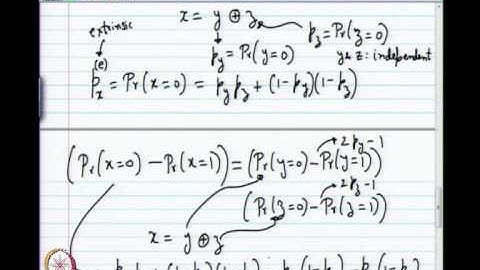 x = y ⊕ z
extrinsic
p_z = Pr(z=0)
p_y = Pr(y=0)
y & z : independent
p_x^(e) = Pr(x=0) = p_y p_z + (1-p_y)(1-p_z)
(Pr(x=0) - Pr(x=1)) = (Pr(y=0) - Pr(y=1))
2p_y-1
2p_z-1
(Pr(z=0) - Pr(z=1))
x = y ⊕ z